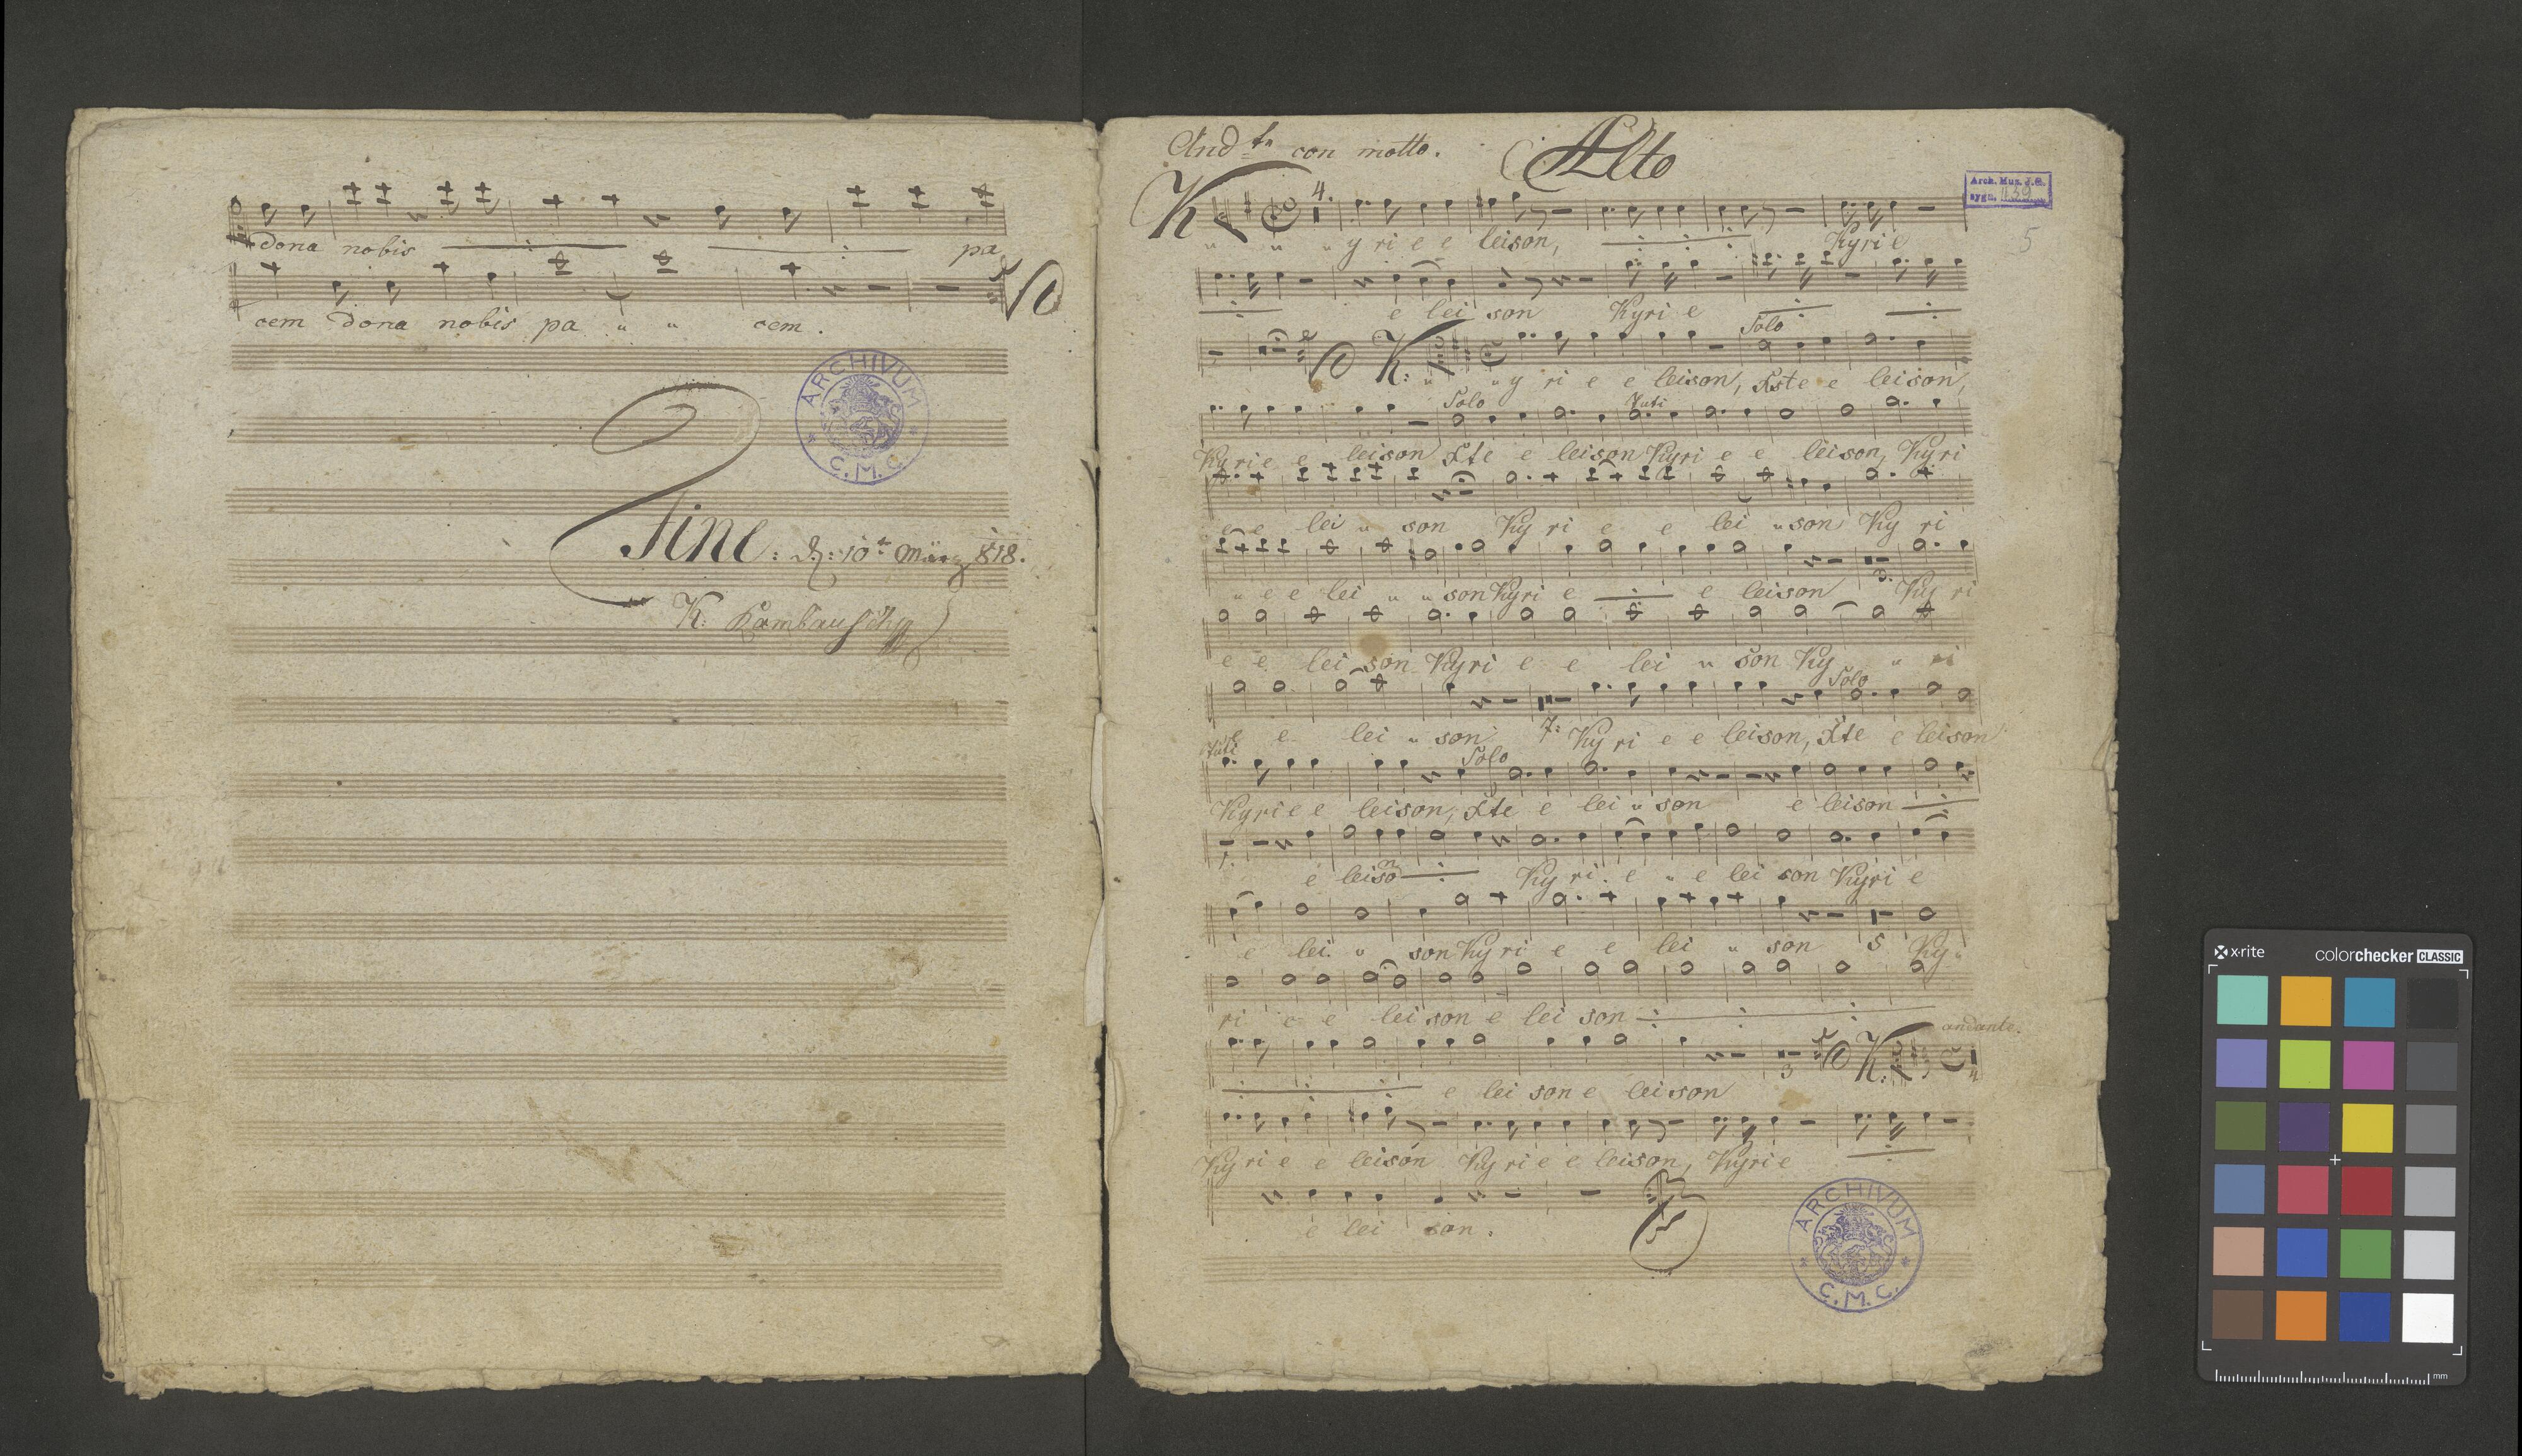 dona nobis pa
cem dona nobis pa " " cem.
ARCHIVUM
C.M.C.
Fine: d: 10t März 818.
K.
Andte con motto. Alto
Arch. Muz. J.G.
sygn.
5
4.
K " " " y ri e e leison, Kyrie
e lei son Kyri e
Solo
K: " " y ri e e leison, Xste e leison,
Solo Tuti
Kyrie e leison Xte e leison Kyri e e leison, Kyri
e e lei " son Kyri e e lei " son Ky ri
3.
" e e lei " " son Kyri e e leison Ky ri
e e lei son Kyri e e lei " son Ky " ri
Solo
e e lei " son 7: Kyri e e leison, Xte e leison
Tuti Solo
Kyrie e leison, Xte e lei " son e leison
1.
e leison Kyri e " e lei son Kyri e
e lei " son Kyri e e lei " son 5 Ky "
ri e e leison e lei son
andante.
3 K: 4
e lei son e leison
Kyri e e leison Kyri e e leison, Kyrie
e lei son.
ARCHIVUM
C.M.C.
x-rite colorchecker CLASSIC
mm